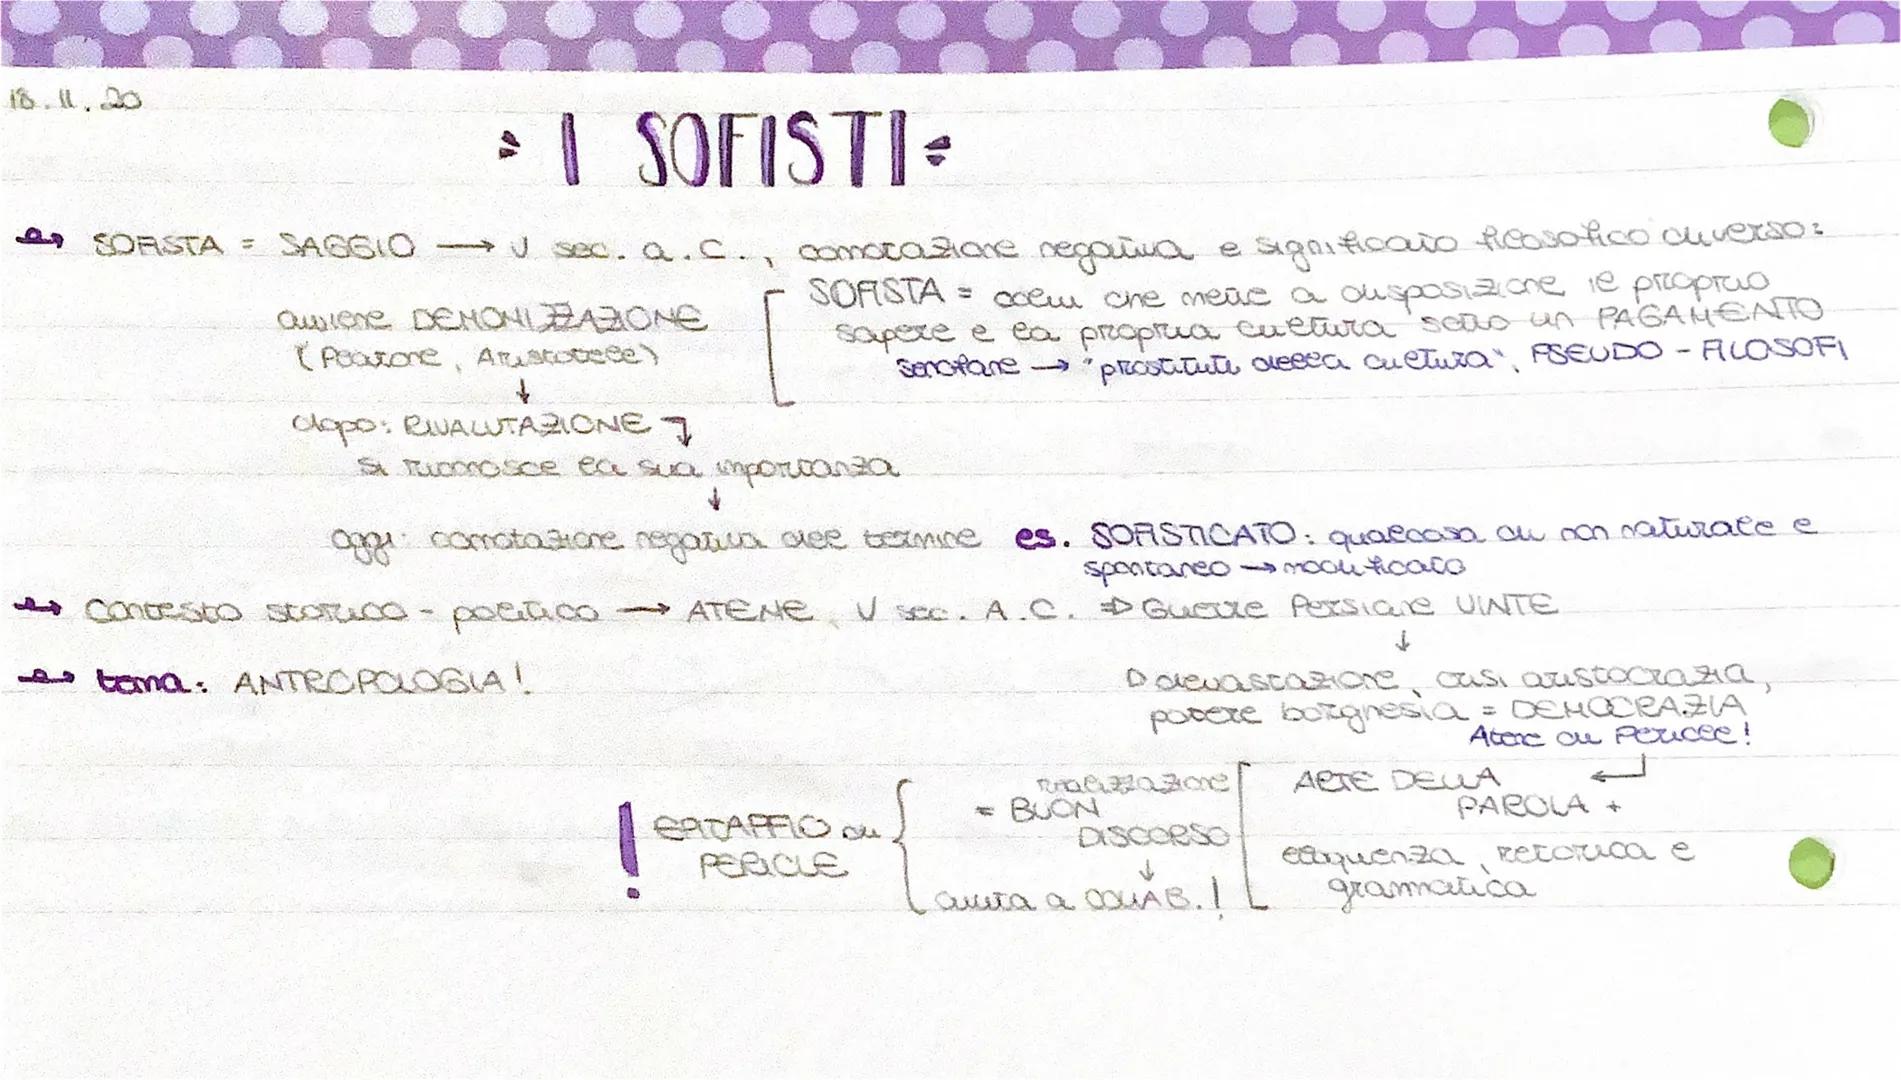 18.11.20
I SOFISTI
SOFISTA = SAGGIO → V sec. a.C., connotazione negativa e significato filosofico diverso:
SOFISTA = colui che mette a disposizione il proprio
sapere e la propria cultura sotto un PAGAMENTO
Senofane → "prostituti della cultura", PSEUDO-FILOSOFI
avviene DEMONIZZAZIONE
(Platone, Aristotele)
↓
dopo: RIVALUTAZIONE
si riconosce la sua importanza
↓
oggi: connotazione negativa del termine es. SOFISTICATO: qualcosa di non naturale e
spontaneo → modificato
contesto storico-politico → ATENE, V sec. A.C. ⇒ Guerre Persiane VINTE
↓
devastazione, crisi aristocrazia,
potere borghesia = DEMOCRAZIA
Atene di Pericle!
tema: ANTROPOLOGIA!
! EPITAFFIO di
PERICLE
= BUON
DISCORSO
↓
aiuta a COLLAB.!
ARTE DELLA
PAROLA +
eloquenza, retorica e
grammatica